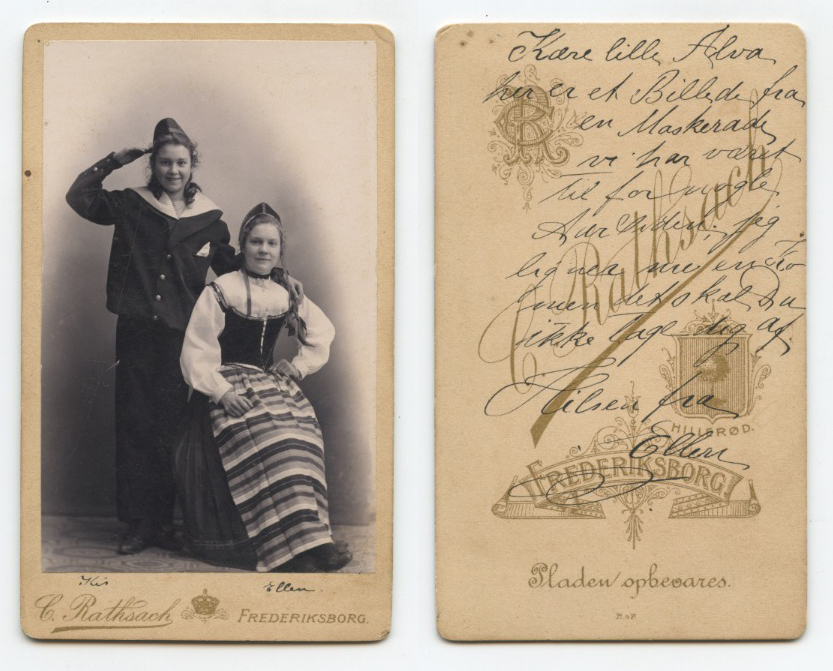 Kis Ellen.
C. Rathsach FREDERIKSBORG.
Kære lille Alva
her er et Billede fra
en Maskerade
vi har været
til for nogle
Aar siden, jeg
ligner nu en Ko
men det skal Du
ikke tage dig af.
Hilsen fra
Ellen
CR
C. Rathsach
HILLERØD.
FREDERIKSBORG.
Pladen opbevares.